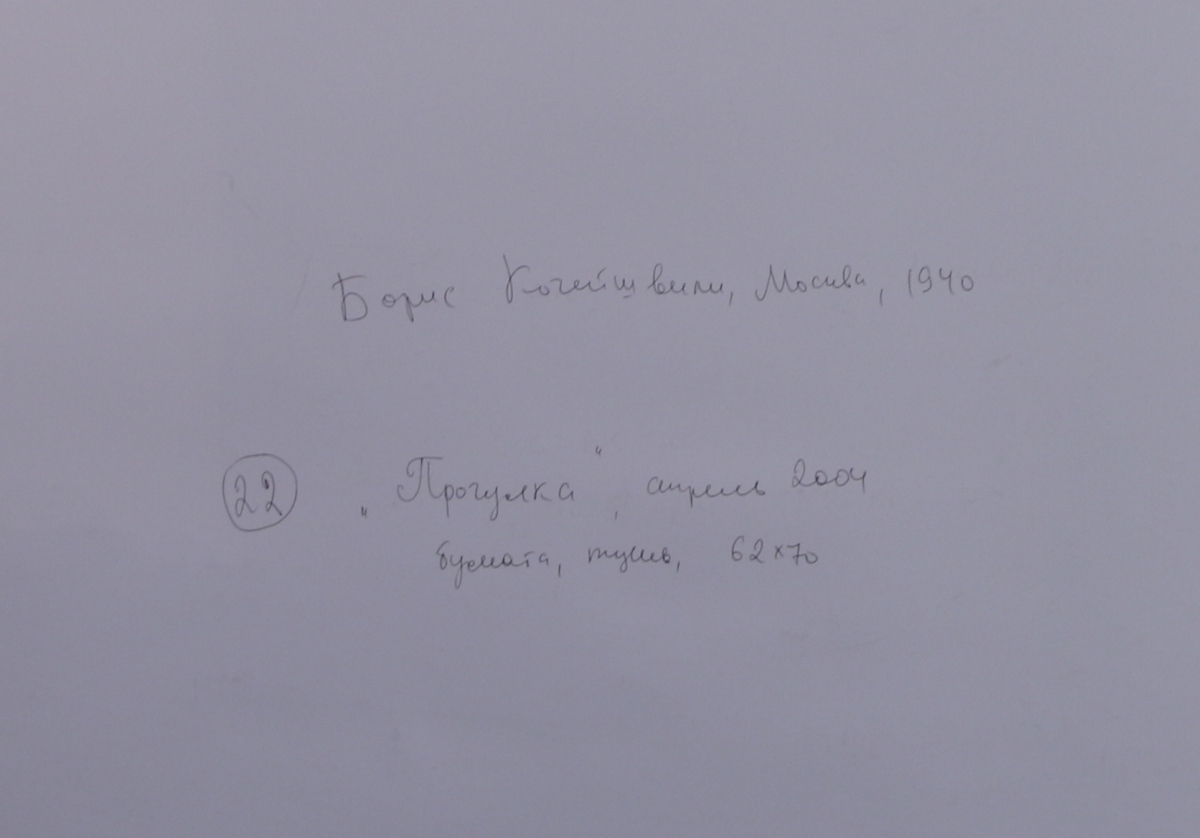 Борис Кочейшвили, Москва, 1940
22 „Прогулка“, апрель 2004
бумага, тушь, 62×70